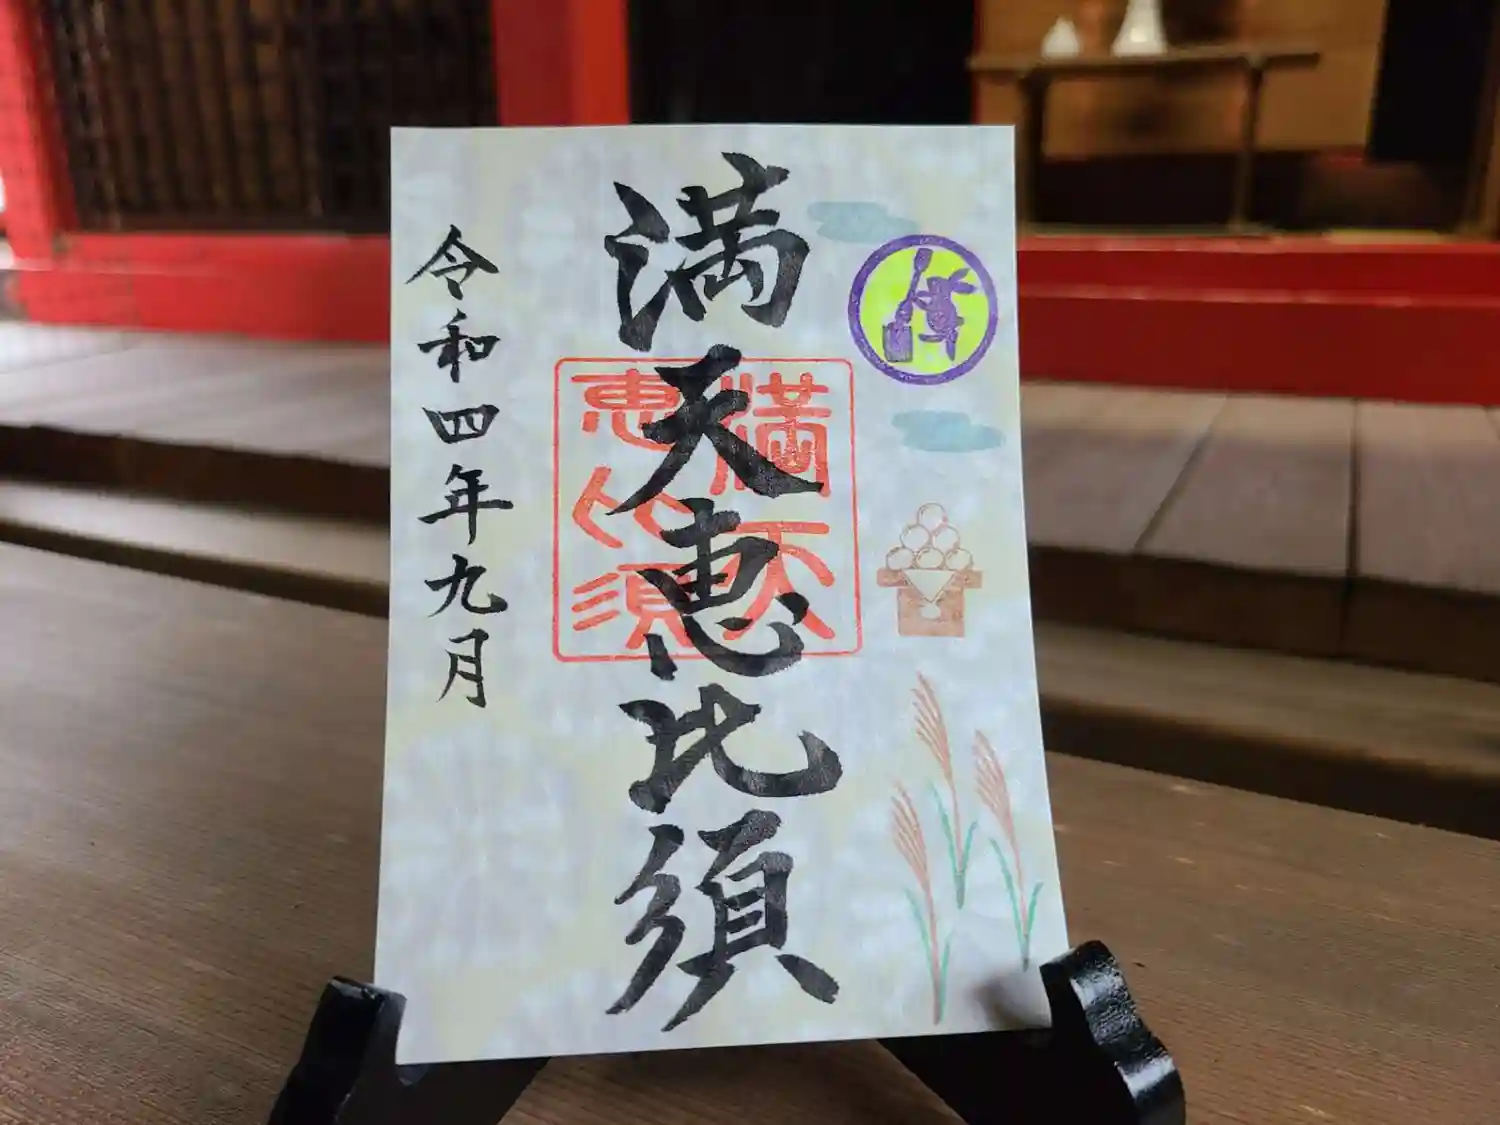 満天恵比須
満天
恵比須
令和四年九月